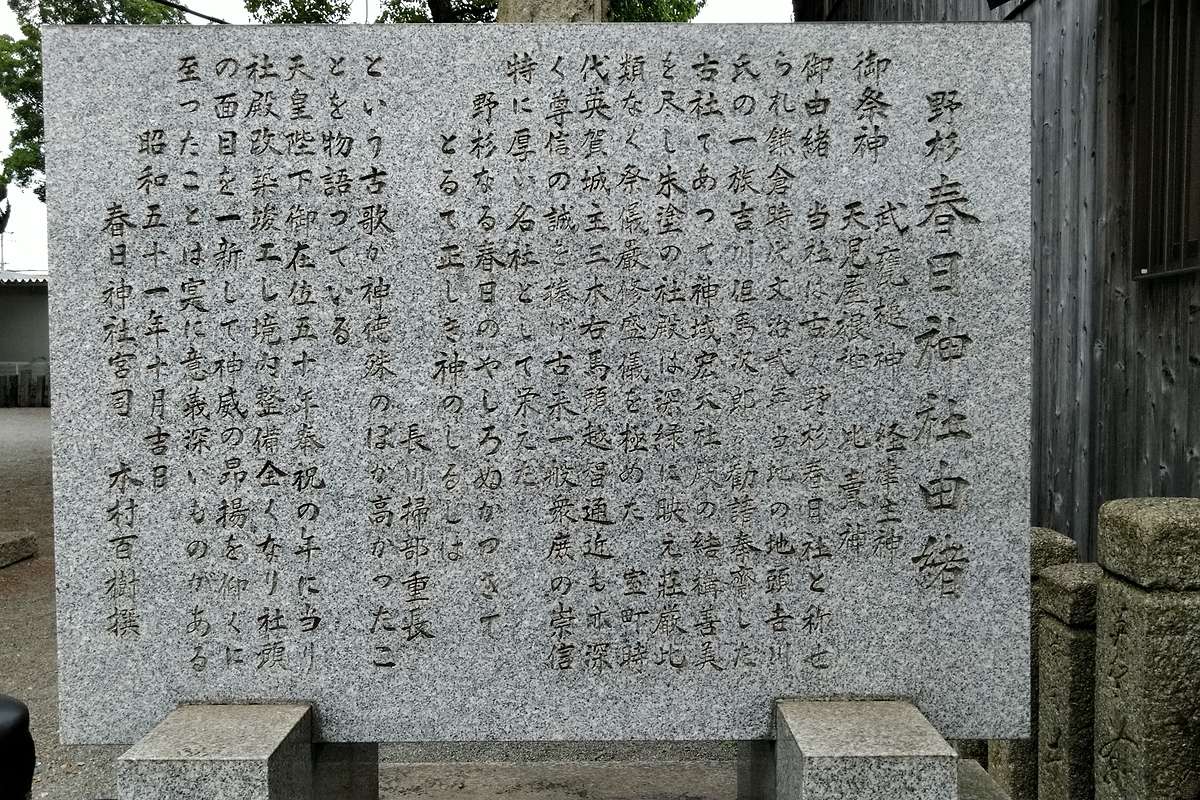 野杉春日神社由緒
御祭神　武甕槌神　経津主神
天児屋根神　比売神
御由緒　当社は古 野杉春日社と称せ
られ鎌倉時代文治弐年当地の地頭吉川
氏の一族吉川但馬次郎 勧請奉斎した
古社であって神域宏大社殿の結構善美
を尽し朱塗の社殿は深緑に映え荘厳比
類なく祭儀厳修盛儀を極めた 室町時
代英賀城主三木右馬頭越智通近も亦深
く尊信の誠を捧げ古来一般衆庶の崇信
特に厚い名社として栄えた
野杉なる春日のやしろぬかつきて
とるて正しき神のしるしは
長川掃部重長
という古歌か神徳殊のほか高かったこ
とを物語っている
天皇陛下御在位五十年奉祝の年に当り
社殿改築竣工し境内整備全くなり社頭
の面目を一新して神威の昂揚を仰くに
至ったことは実に意義深いものがある
昭和五十一年十月吉日
春日神社宮司　木村百樹撰